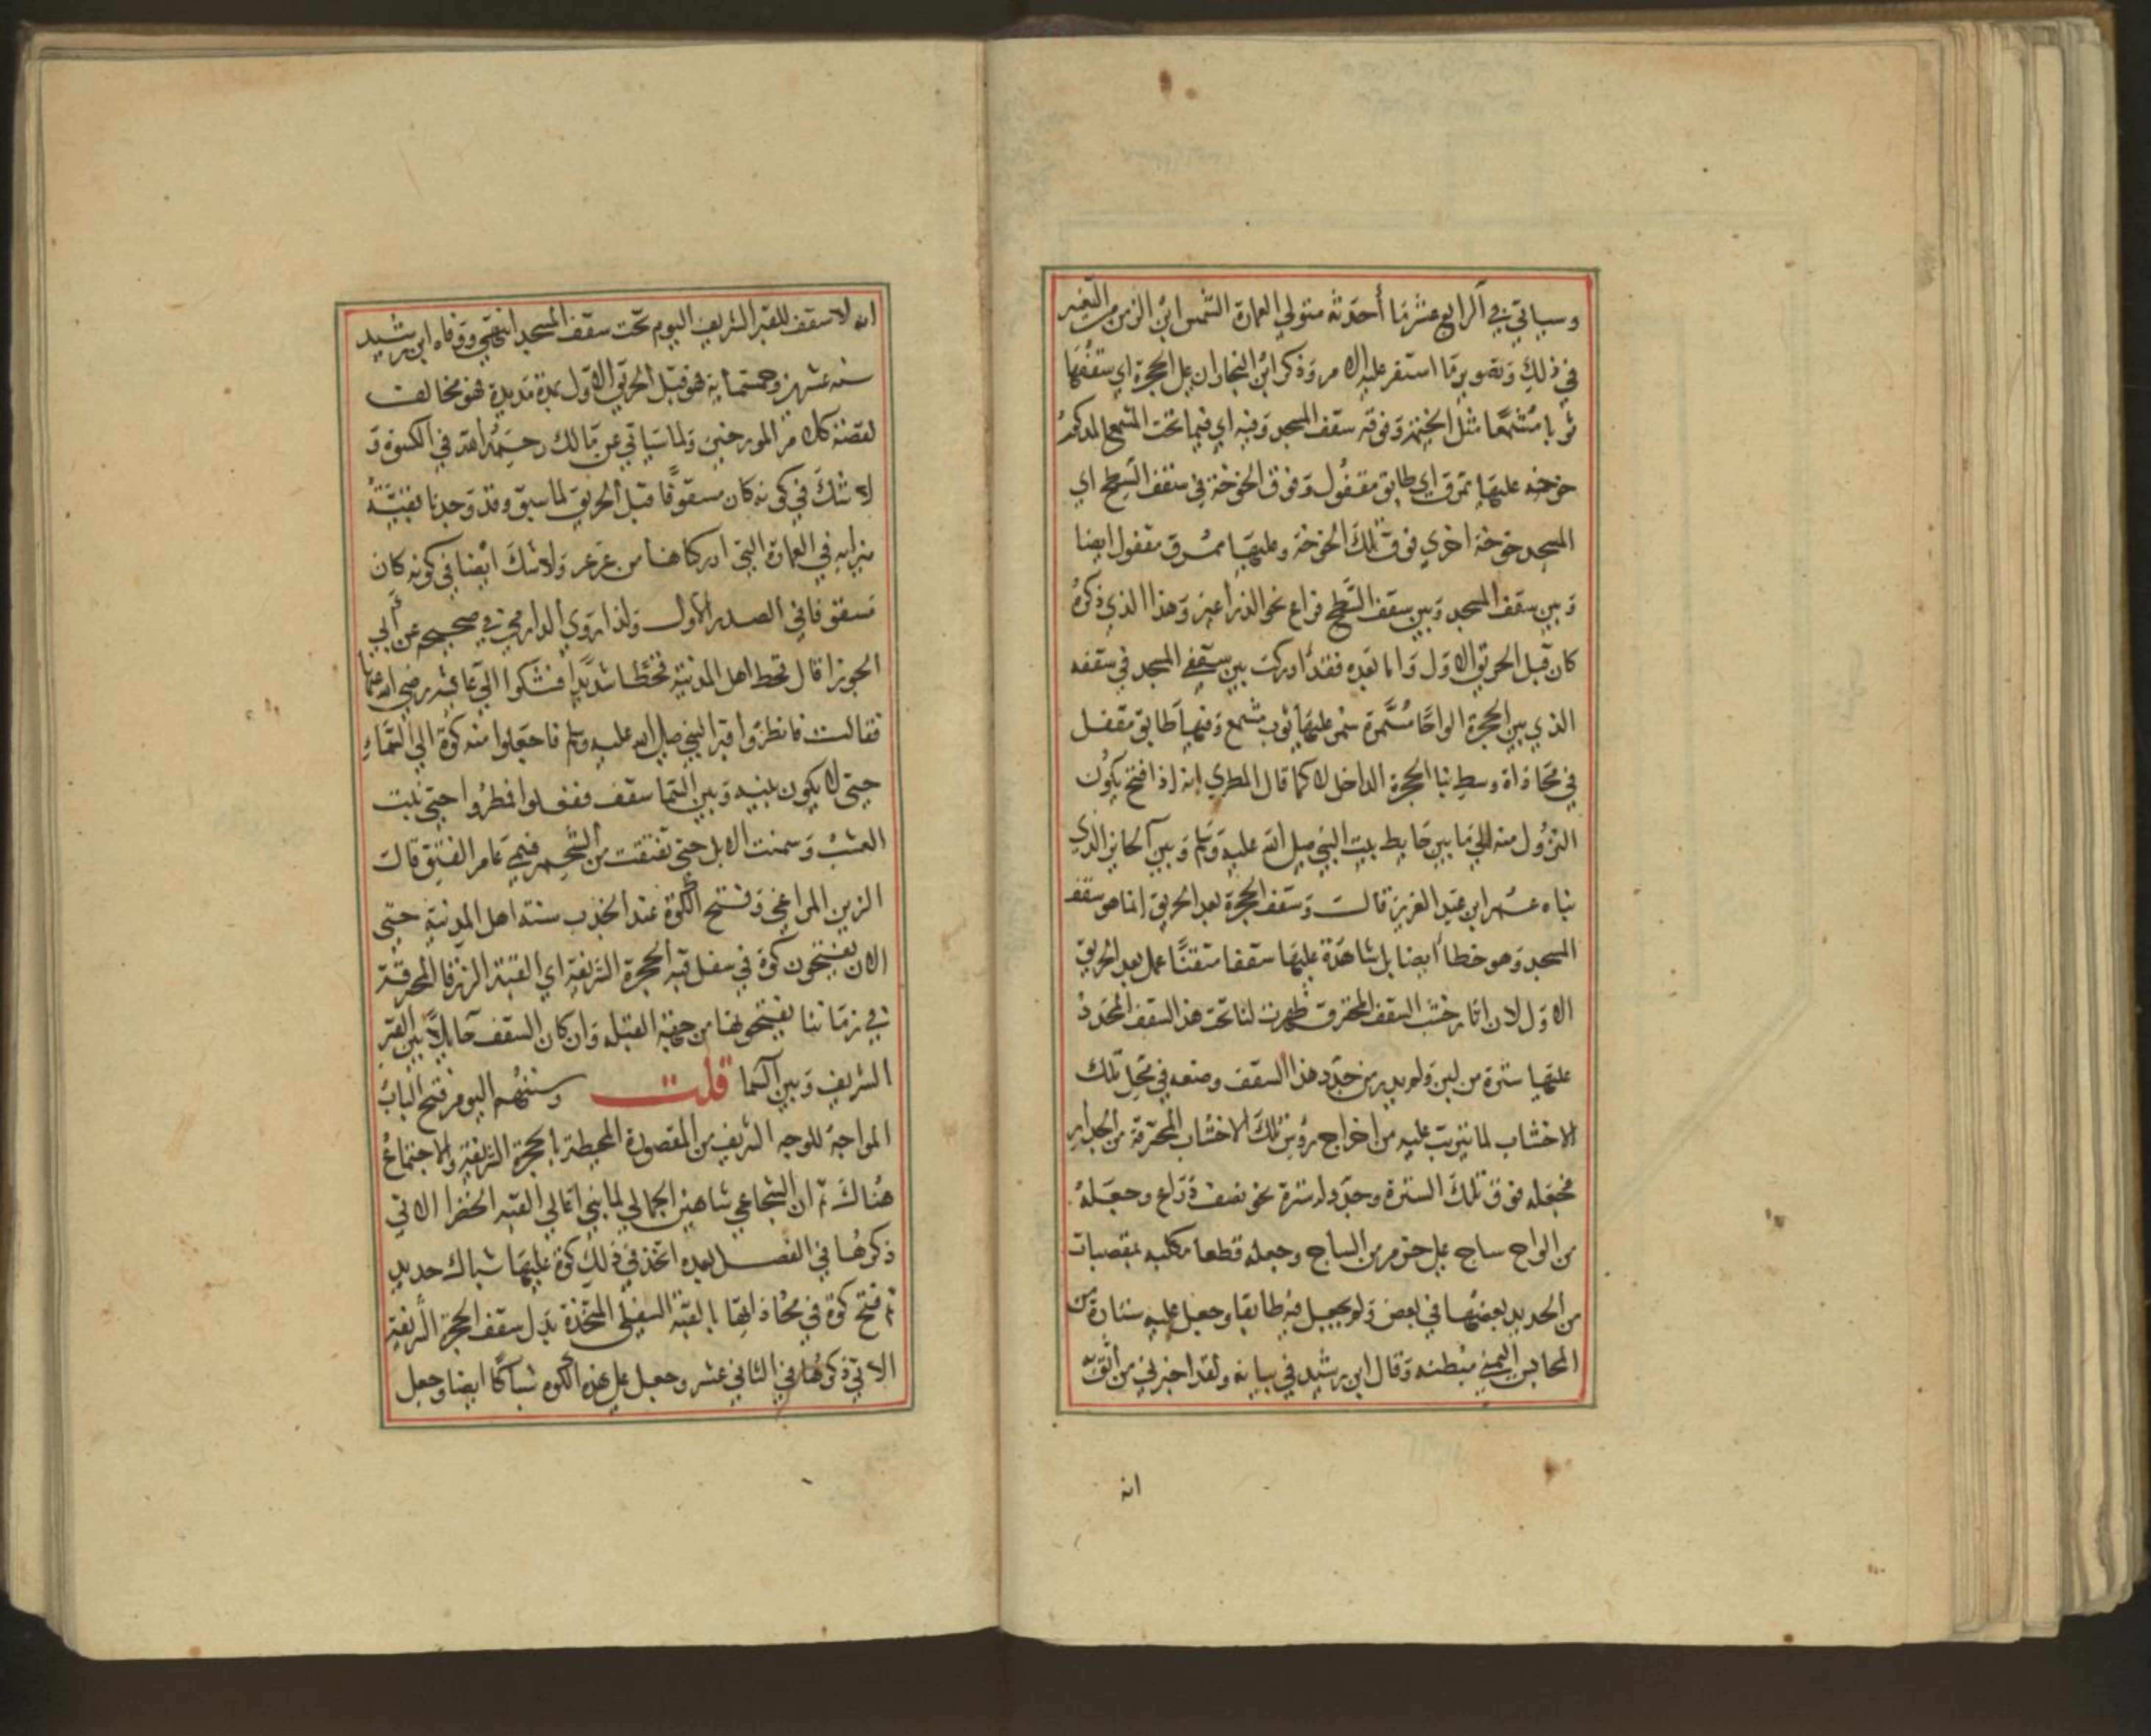 وسياتي في الرابع عشر ما أحدثه متولي العمارة الشمس ابن الزمن من التغيير
في ذلك وتصوير ما استقر عليه الامر وذكر ابن النجار ان على الحجرة اي سقفها
ثوبا مشمعا مثل الخيمة وفوقه سقف المسجد وفيه اي فيما تحت المشمع المذكور
خوخه عليها ممرق اي طابق مقفول وفوق الخوخة في سقف السطح اي
المسجد خوخة اخري فوق تلك الخوخة وعليها ممرق مقفول ايضا
وبين سقف المسجد وبين سقف السطح فراغ نحو الذراعين وهذا الذي ذكره
كان قبل الحريق الاول واما بعده فقد ادركت بين سقفي المسجد في سقفه
الذي يلي الحجرة الواحا مسمرة سمر عليها ثوب مشمع وفيها طابق مقفل
في محاذاة وسط بنا الحجرة الداخل لا كما قال المطري انه اذا فتح يكون
النزول منه الى ما بين حايط بيت النبي صلى الله عليه وسلم وبين الحايز الذي
بناه عمر ابن عبد العزيز قالت وسقف الحجرة بعد الحريق انما هو سقف
المسجد وهو خطا أيضا بل شاهدة عليها سقفا متقنا عمل بعد الحريق
الاول لان اثار خشب السقف المحترق ظهرت لنا تحت هذا السقف المجدد
عليها سترة من لبن ولم يدر من جدد هذا السقف وضعه في محل تلك
الاخشاب لما يترتب عليه من اخراج رؤس تلك الاخشاب المحترقة من الجدار
فجعله فوق تلك السترة وجدد له سترة نحو نصف ذراع وجعله
من الواح ساج على حزم من الساج وجعله قطعا مكلبه بمقصبات
من الحديد بعضها في بعض ولم يجعل فيه طابقا وجعل عليه ستارة من
المحابس اليمني مبطنه وقال ابن رشيد في بيانه ولقد اخبرني من اثق به
انه
انه لا سقف للقبر الشريف اليوم تحت سقف المسجد انتهي ووفاه ابن رشيد
سنه عشرين وخمسمايه فهو قبل الحريق الاول بمدة مديدة فهو مخالف
لقضية كلام المورخين ولما سياتي عن مالك رحمه الله في الكسوة و
لا شك في كونه كان مسقوفا قبل الحريق لما سبق وقد وجدنا بقية
ميزابه في العمارة التي ادركناها من عرعر ولا شك ايضا في كونه كان
مسقوفا في الصدر الاول ولذا روي الدارمي في صحيحه عن أبي
الجوزا قال قحط اهل المدينة قحطا شديدا فشكوا الي عائشه رضي الله عنها
فقالت فانظروا قبر النبي صلى الله عليه وسلم فاجعلوا منه كوة الي السماء
حتي لا يكون بينه وبين السما سقف ففعلوا فمطروا حتي نبت
العشب وسمنت الابل حتي تفتقت من الشحم فسمي عام الفتق قالت
الزين المراغي وفتح الكوة عند الجدب سنة اهل المدينة حتي
الان يفتحون كوة في سفل قبة الحجرة الشريفة اي القبة الزرقا المحرقة
في زماننا يفتحونها من جهة القبلة وان كان السقف حايلا بين القبر
الشريف وبين السما قلت وسنتهم اليوم فتح الباب
المواجه للوجه الشريف من المقصورة المحيطة بالحجرة الشريفة والاجتماع
هناك ثم ان الشجاعي شاهين الجمالي لما بني اعالي القبه الخضرا الاتي
ذكرها في الفصل بعده اتخذ في ذلك كوة عليها شباك حديد
ثم فتح كوة في محاذاتها بالقبة السفلى المتخذة بدل سقف الحجرة الشريفة
الاتي ذكرها في الثاني عشر وجعل على هذه الكوه شباكا ايضا وجعل